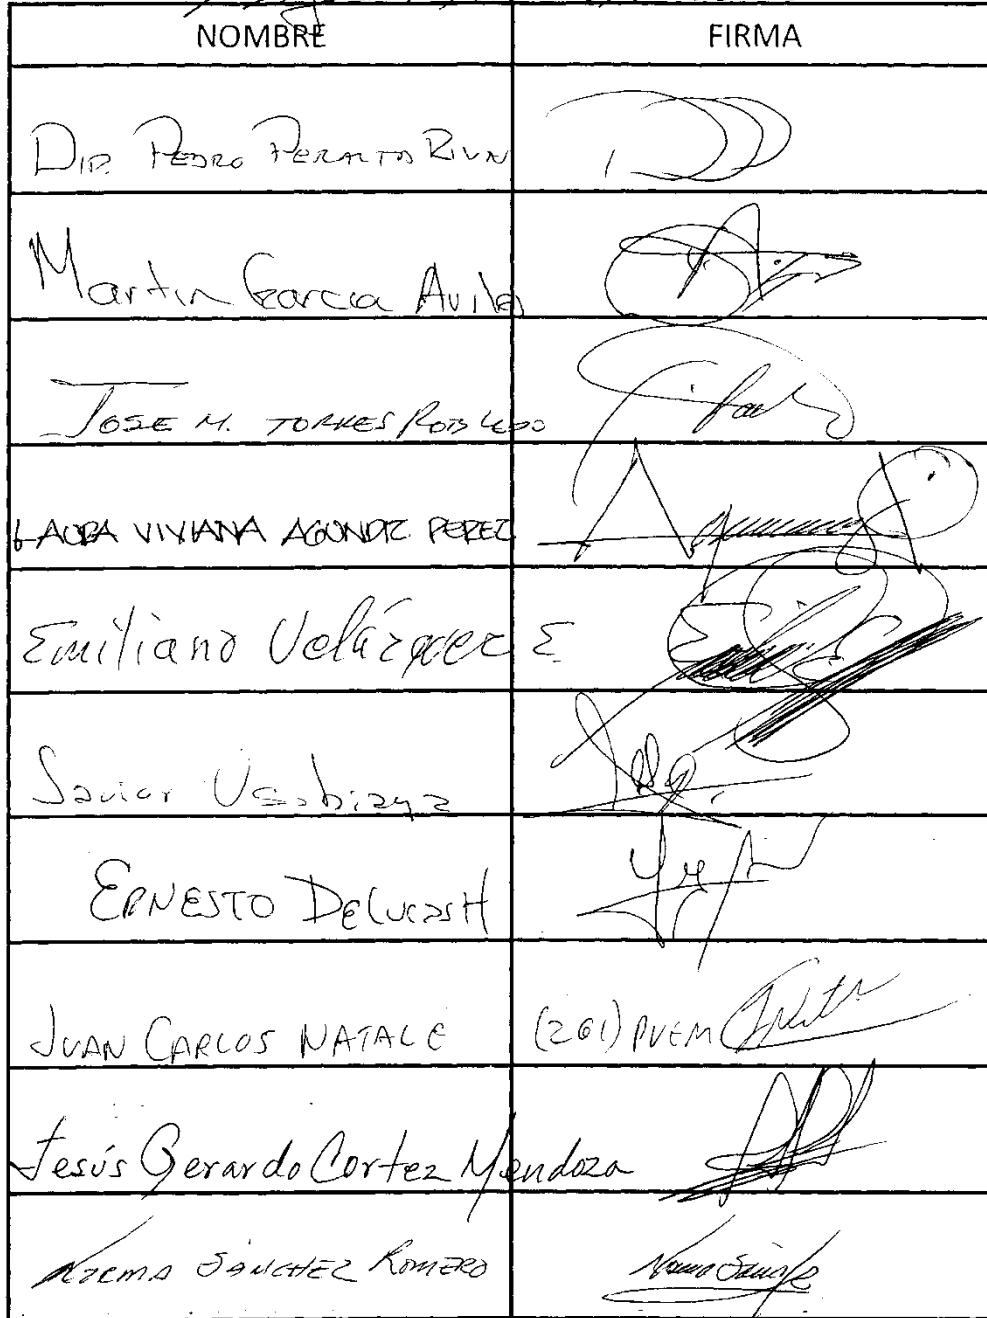 NOMBRE FIRMA
DIP. PEDRO PERALTA RIVA
Martin Garcia Aviles
JOSE M. TORRES ROBLEDO
LAURA VIVIANA AGUNDIZ PEREZ
Emiliano Velázquez E.
Javier Usabiaga
ERNESTO DeLucas H
JUAN CARLOS NATALE (261) PVEM
Jesús Gerardo Cortez Mendoza
NORMA SÁNCHEZ ROMERO